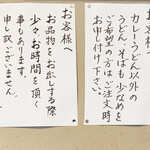 お客様へ
カレーうどん以外の
うどん、そばも少なめを
ご希望の方はご注文時
お申し付け下さい。
お客様へ
お品物をお出しする際
少々、お時間を頂く
事もあります。
申し訳ございません。